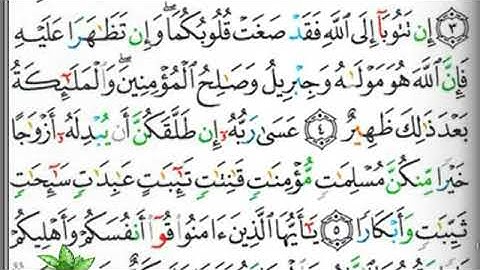 ٣ إِن تَتُوبَآ إِلَى ٱللَّهِ فَقَدْ صَغَتْ قُلُوبُكُمَا ۖ وَإِن تَظَٰهَرَا عَلَيْهِ
فَإِنَّ ٱللَّهَ هُوَ مَوْلَىٰهُ وَجِبْرِيلُ وَصَٰلِحُ ٱلْمُؤْمِنِينَ ۖ وَٱلْمَلَٰٓئِكَةُ
بَعْدَ ذَٰلِكَ ظَهِيرٌ ٤ عَسَىٰ رَبُّهُۥٓ إِن طَلَّقَكُنَّ أَن يُبْدِلَهُۥٓ أَزْوَٰجًا
خَيْرًا مِّنكُنَّ مُسْلِمَٰتٍ مُّؤْمِنَٰتٍ قَٰنِتَٰتٍ تَٰٓئِبَٰتٍ عَٰبِدَٰتٍ سَٰٓئِحَٰتٍ
ثَيِّبَٰتٍ وَأَبْكَارًا ٥ يَٰٓأَيُّهَا ٱلَّذِينَ ءَامَنُوا۟ قُوٓا۟ أَنفُسَكُمْ وَأَهْلِيكُمْ